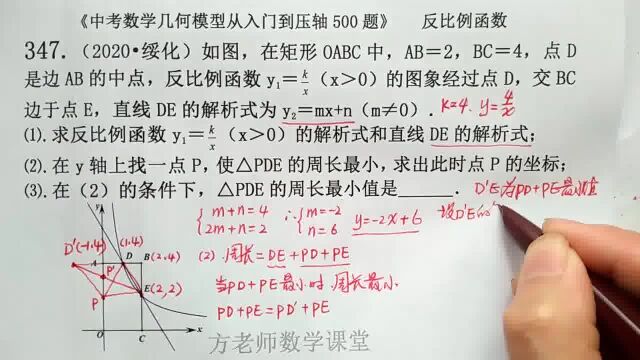 《中考数学几何模型从入门到压轴 500 题》 反比例函数
347.（2020•绥化）如图，在矩形 OABC 中，AB＝2，BC＝4，点 D
是边 AB 的中点，反比例函数 y₁＝k/x（x＞0）的图象经过点 D，交 BC
边于点 E，直线 DE 的解析式为 y₂＝mx+n（m≠0）. k=4. y=4/x
(1). 求反比例函数 y₁＝k/x（x＞0）的解析式和直线 DE 的解析式；
(2). 在 y 轴上找一点 P，使△PDE 的周长最小，求出此时点 P 的坐标；
(3). 在（2）的条件下，△PDE 的周长最小值是______． D'E为PD+PE最小值
{m+n=4 ∴{m=-2 y=-2x+6 设D'E的
2m+n=2 n=6
(2) 周长=DE+PD+PE
当PD+PE最小时 周长最小
PD+PE=PD'+PE
y
D'(-1,4) A (1,4) D B(2,4)
P'
E(2,2)
P
O C x
方老师数学课堂